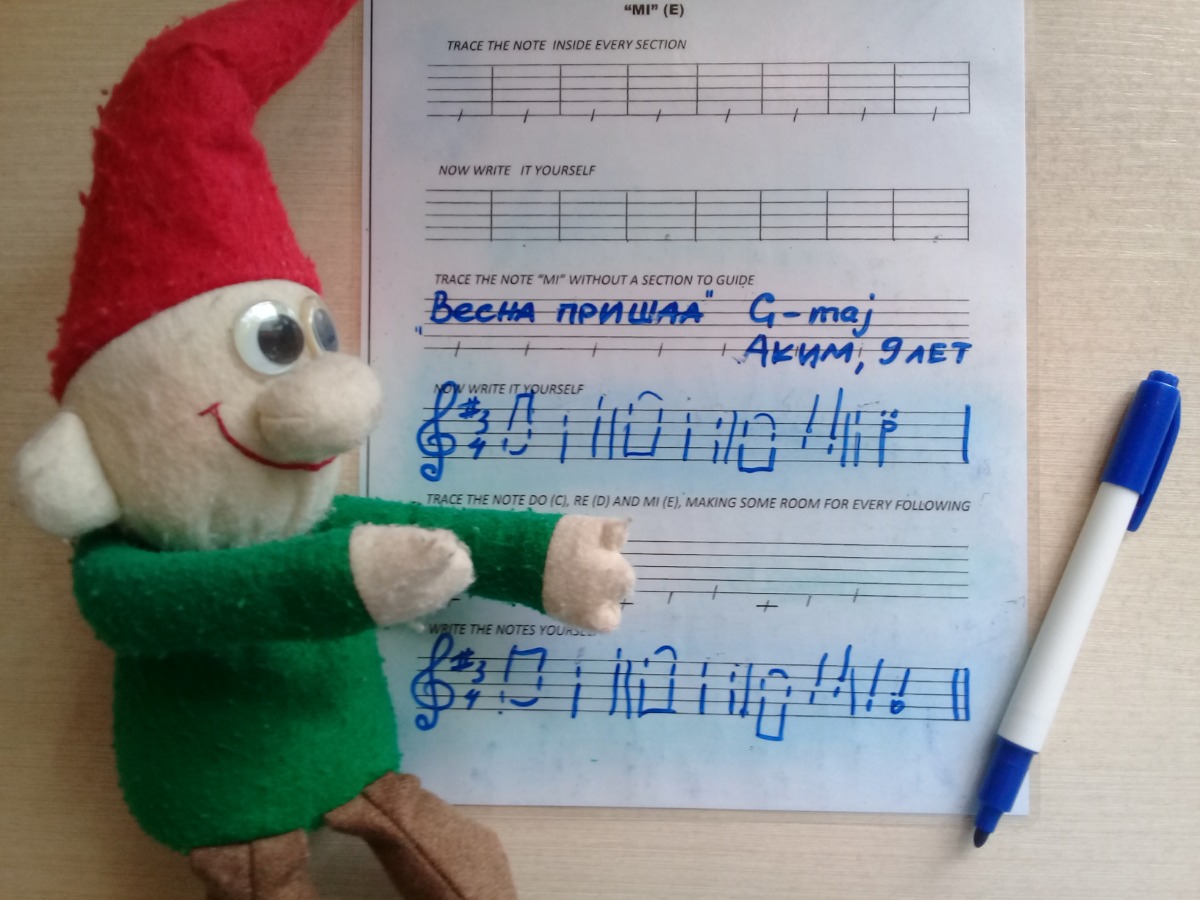 "MI" (E)
TRACE THE NOTE INSIDE EVERY SECTION
NOW WRITE IT YOURSELF
TRACE THE NOTE "MI" WITHOUT A SECTION TO GUIDE
"Весна пришла" G-maj
Аким, 9 лет
NOW WRITE IT YOURSELF
3
4
TRACE THE NOTE DO (C), RE (D) AND MI (E), MAKING SOME ROOM FOR EVERY FOLLOWING
WRITE THE NOTES YOURSELF
3
4